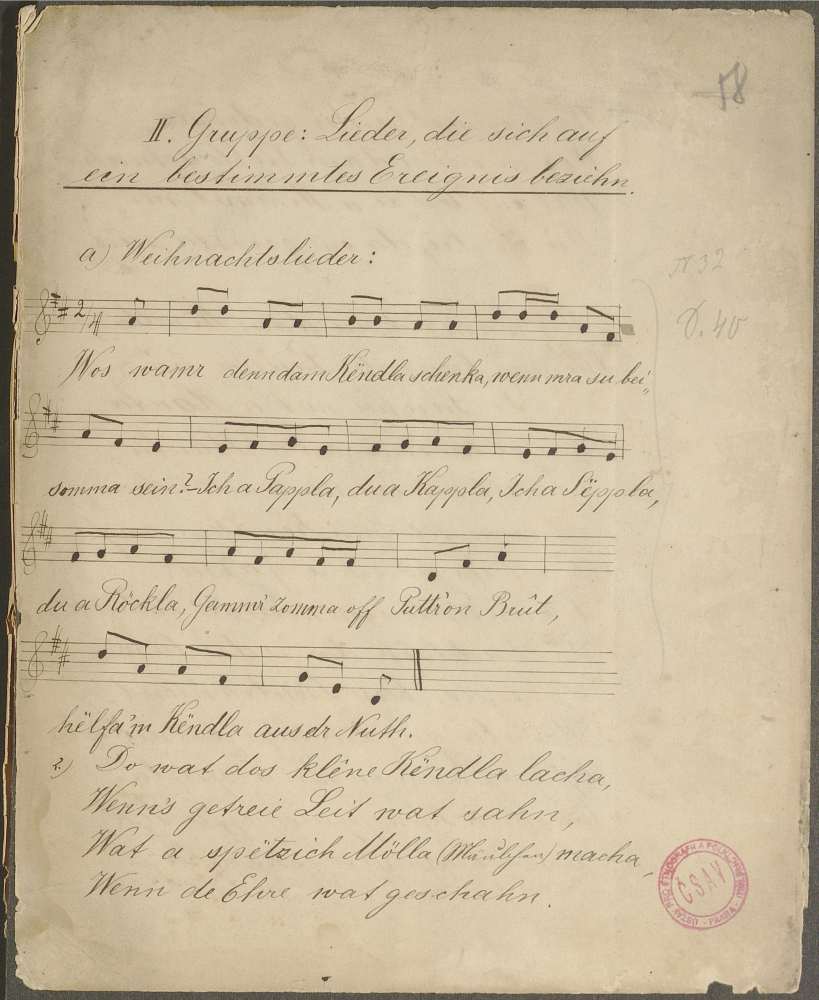 58
II. Gruppe: Lieder, die sich auf
ein bestimmtes Ereignis beziehn.
a) Weihnachtslieder:
π 32
2/4
D. 40
Wos wamr denn dam Këndla schenka, wenn mra su bei„
somma sein? – Ich a Pappla, du a Kappla, Ich a Sëppla,
du a Röckla, Gamm'r zomma off Puttr'on Brût,
hëlfa'm Këndla aus dr Nuth.
2.) Do wat dos klêne Këndla lacha,
Wenn's getreie Leit wat sahn,
Wat a spëtzich Mölla (Mäulchen) macha,
Wenn de Ehre wat geschahn.
ČSAV
ÚSTAV PRO ETNOGRAFII A FOLKLORISTIKU
PRAHA